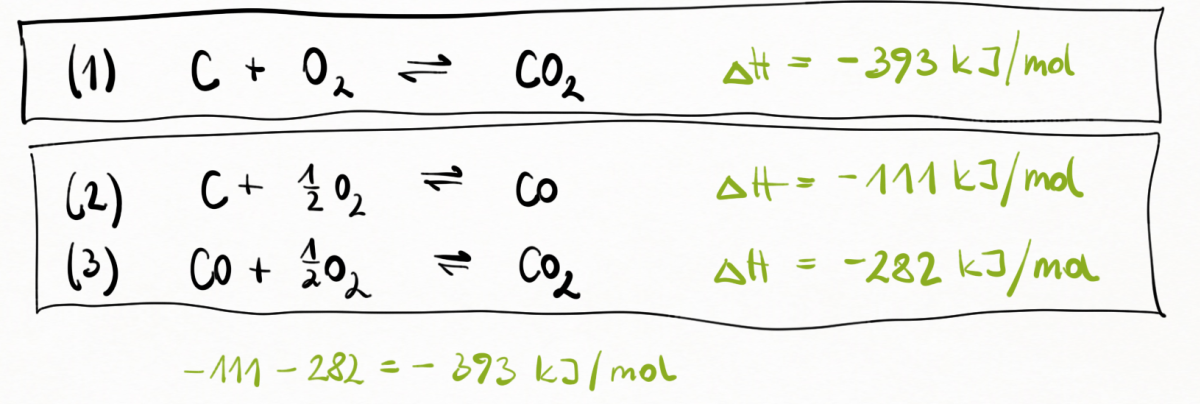 (1) C + O₂ ⇌ CO₂ ΔH = -393 kJ/mol
(2) C + ½ O₂ ⇌ CO ΔH = -111 kJ/mol
(3) CO + ½ O₂ ⇌ CO₂ ΔH = -282 kJ/mol
-111 - 282 = - 393 kJ/mol